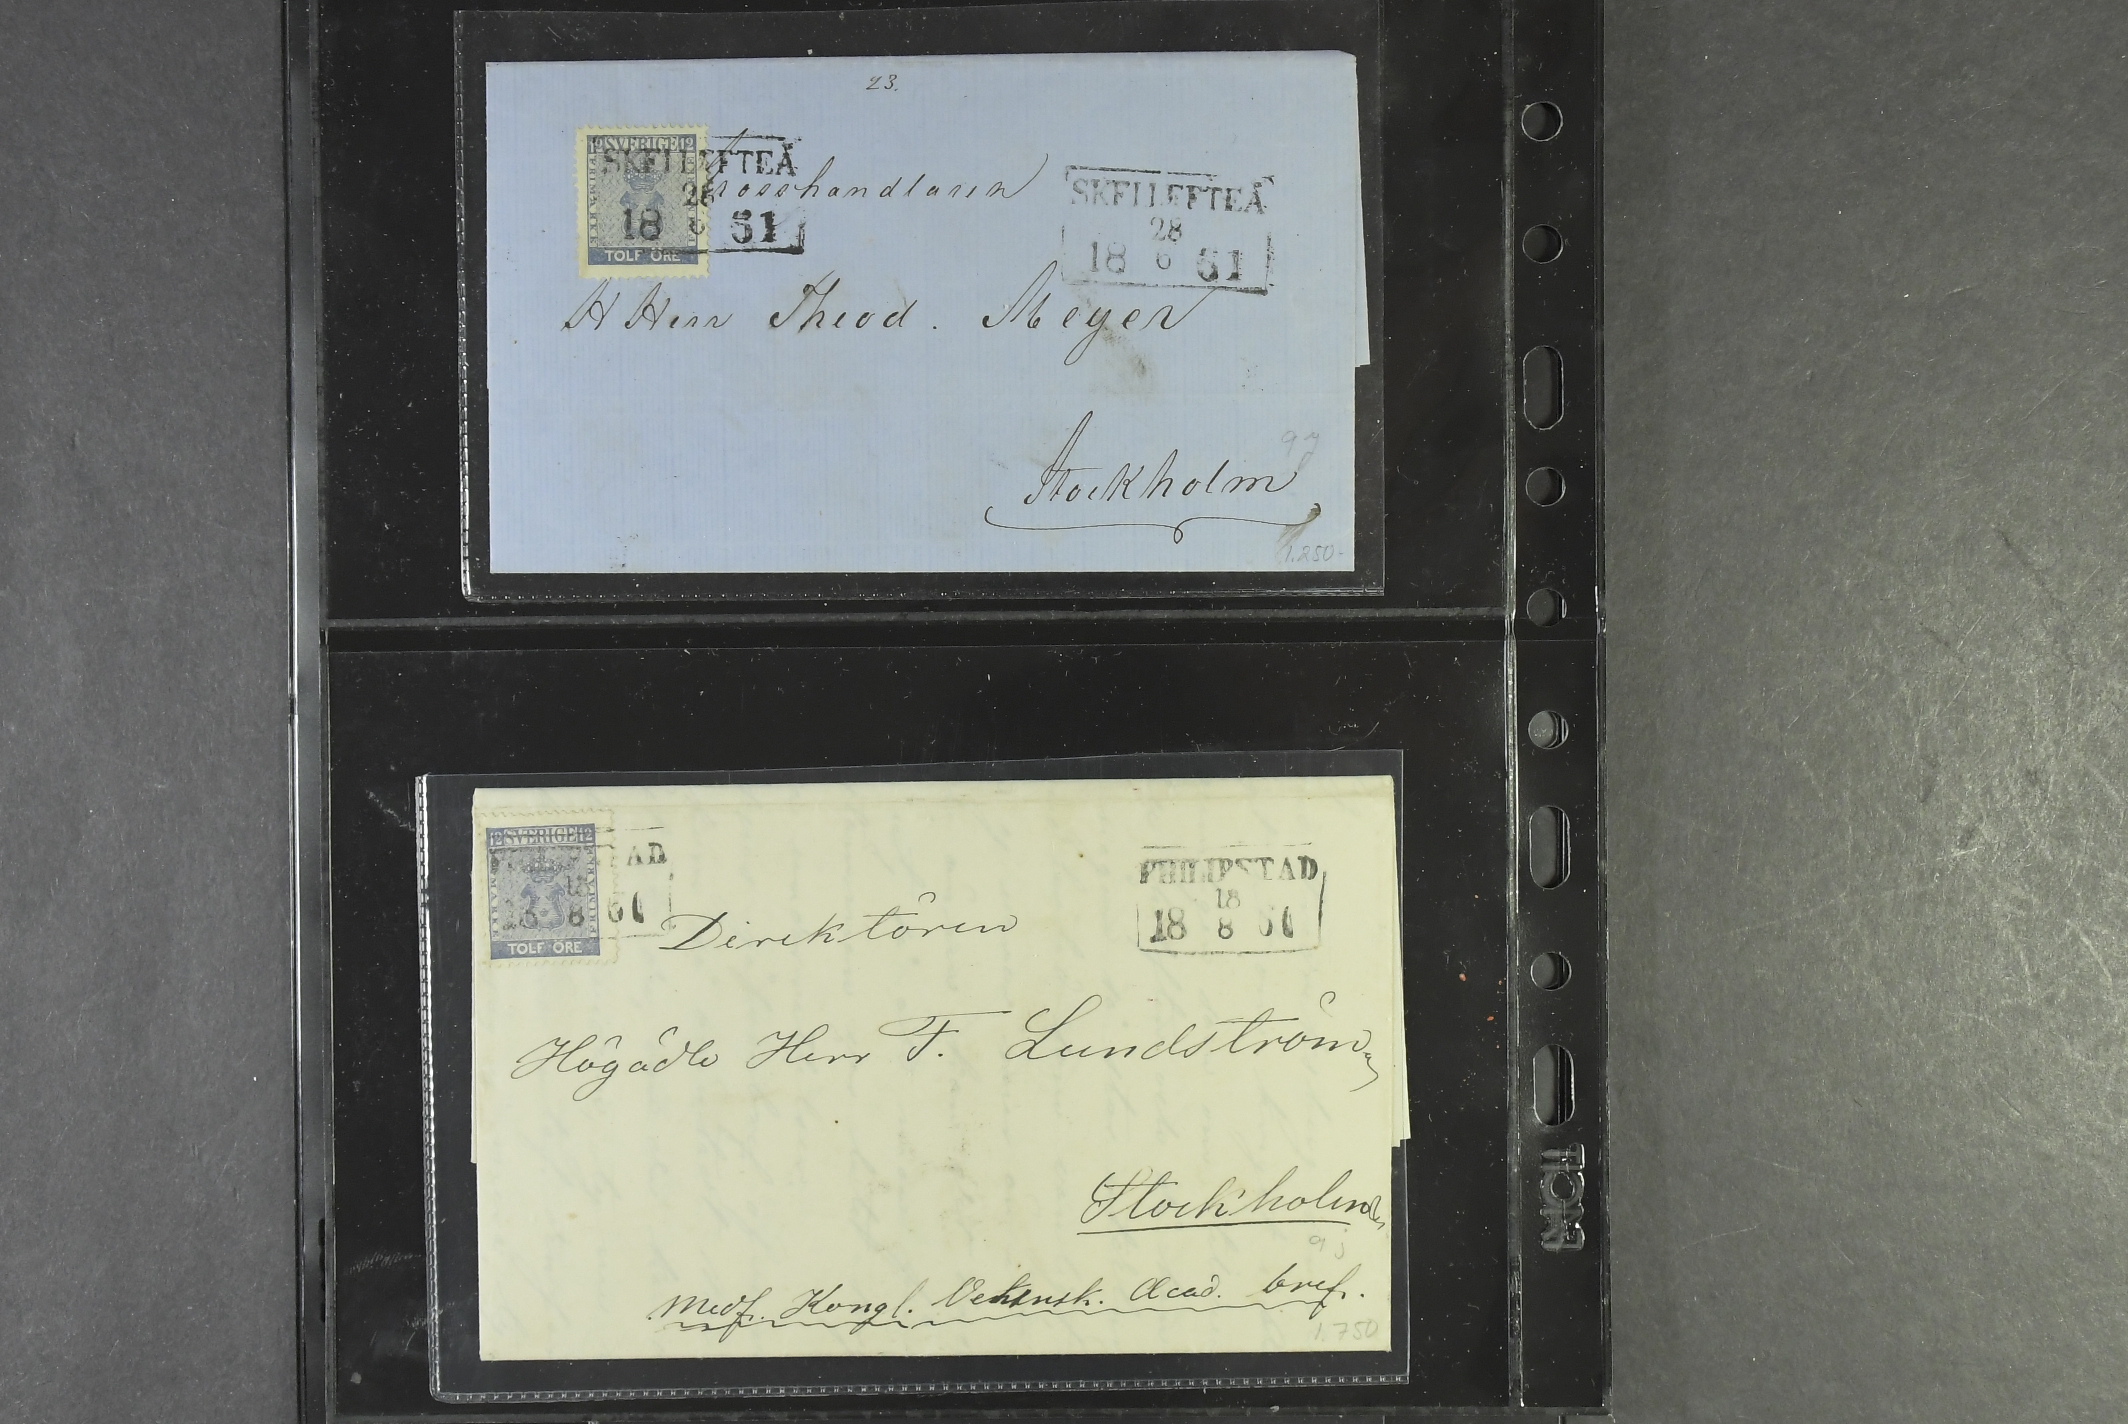 23.
12 SVERIGE 12
FRIMÆRKE
TOLF ÖRE
SKELLEFTEÅ
28
18 6 61
Grosshandlaren
SKELLEFTEÅ
28
18 6 61
H Herr Theod. Meyer
Stockholm
1.250-
12 SVERIGE 12
FRIMÆRKE
TOLF ÖRE
STAD
18
18 8 61
PHILIPSTAD
18
18 8 61
Direktören
Högädle Herr F. Lundström
Stockholm
9 j
Medf. Kongl. Vetensk. Acad. bref.
1.750